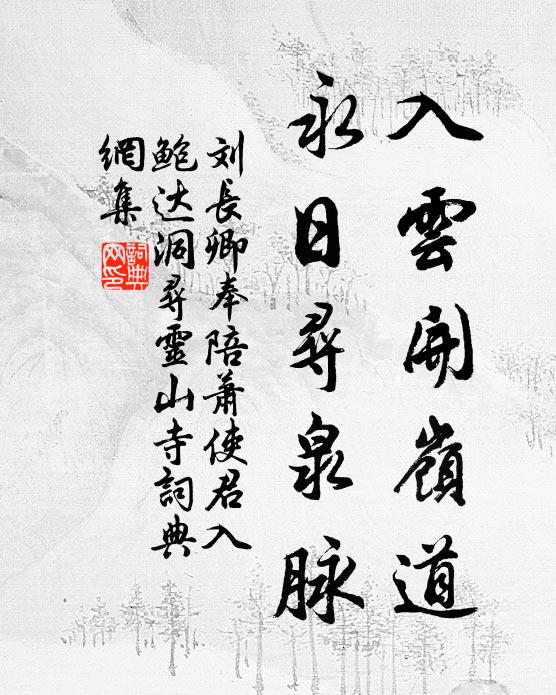 入雲開嶺道
永日尋泉脉
刘長卿奉陪萧使君入
鲍达洞尋靈山寺詞典
網集
詞典
网印